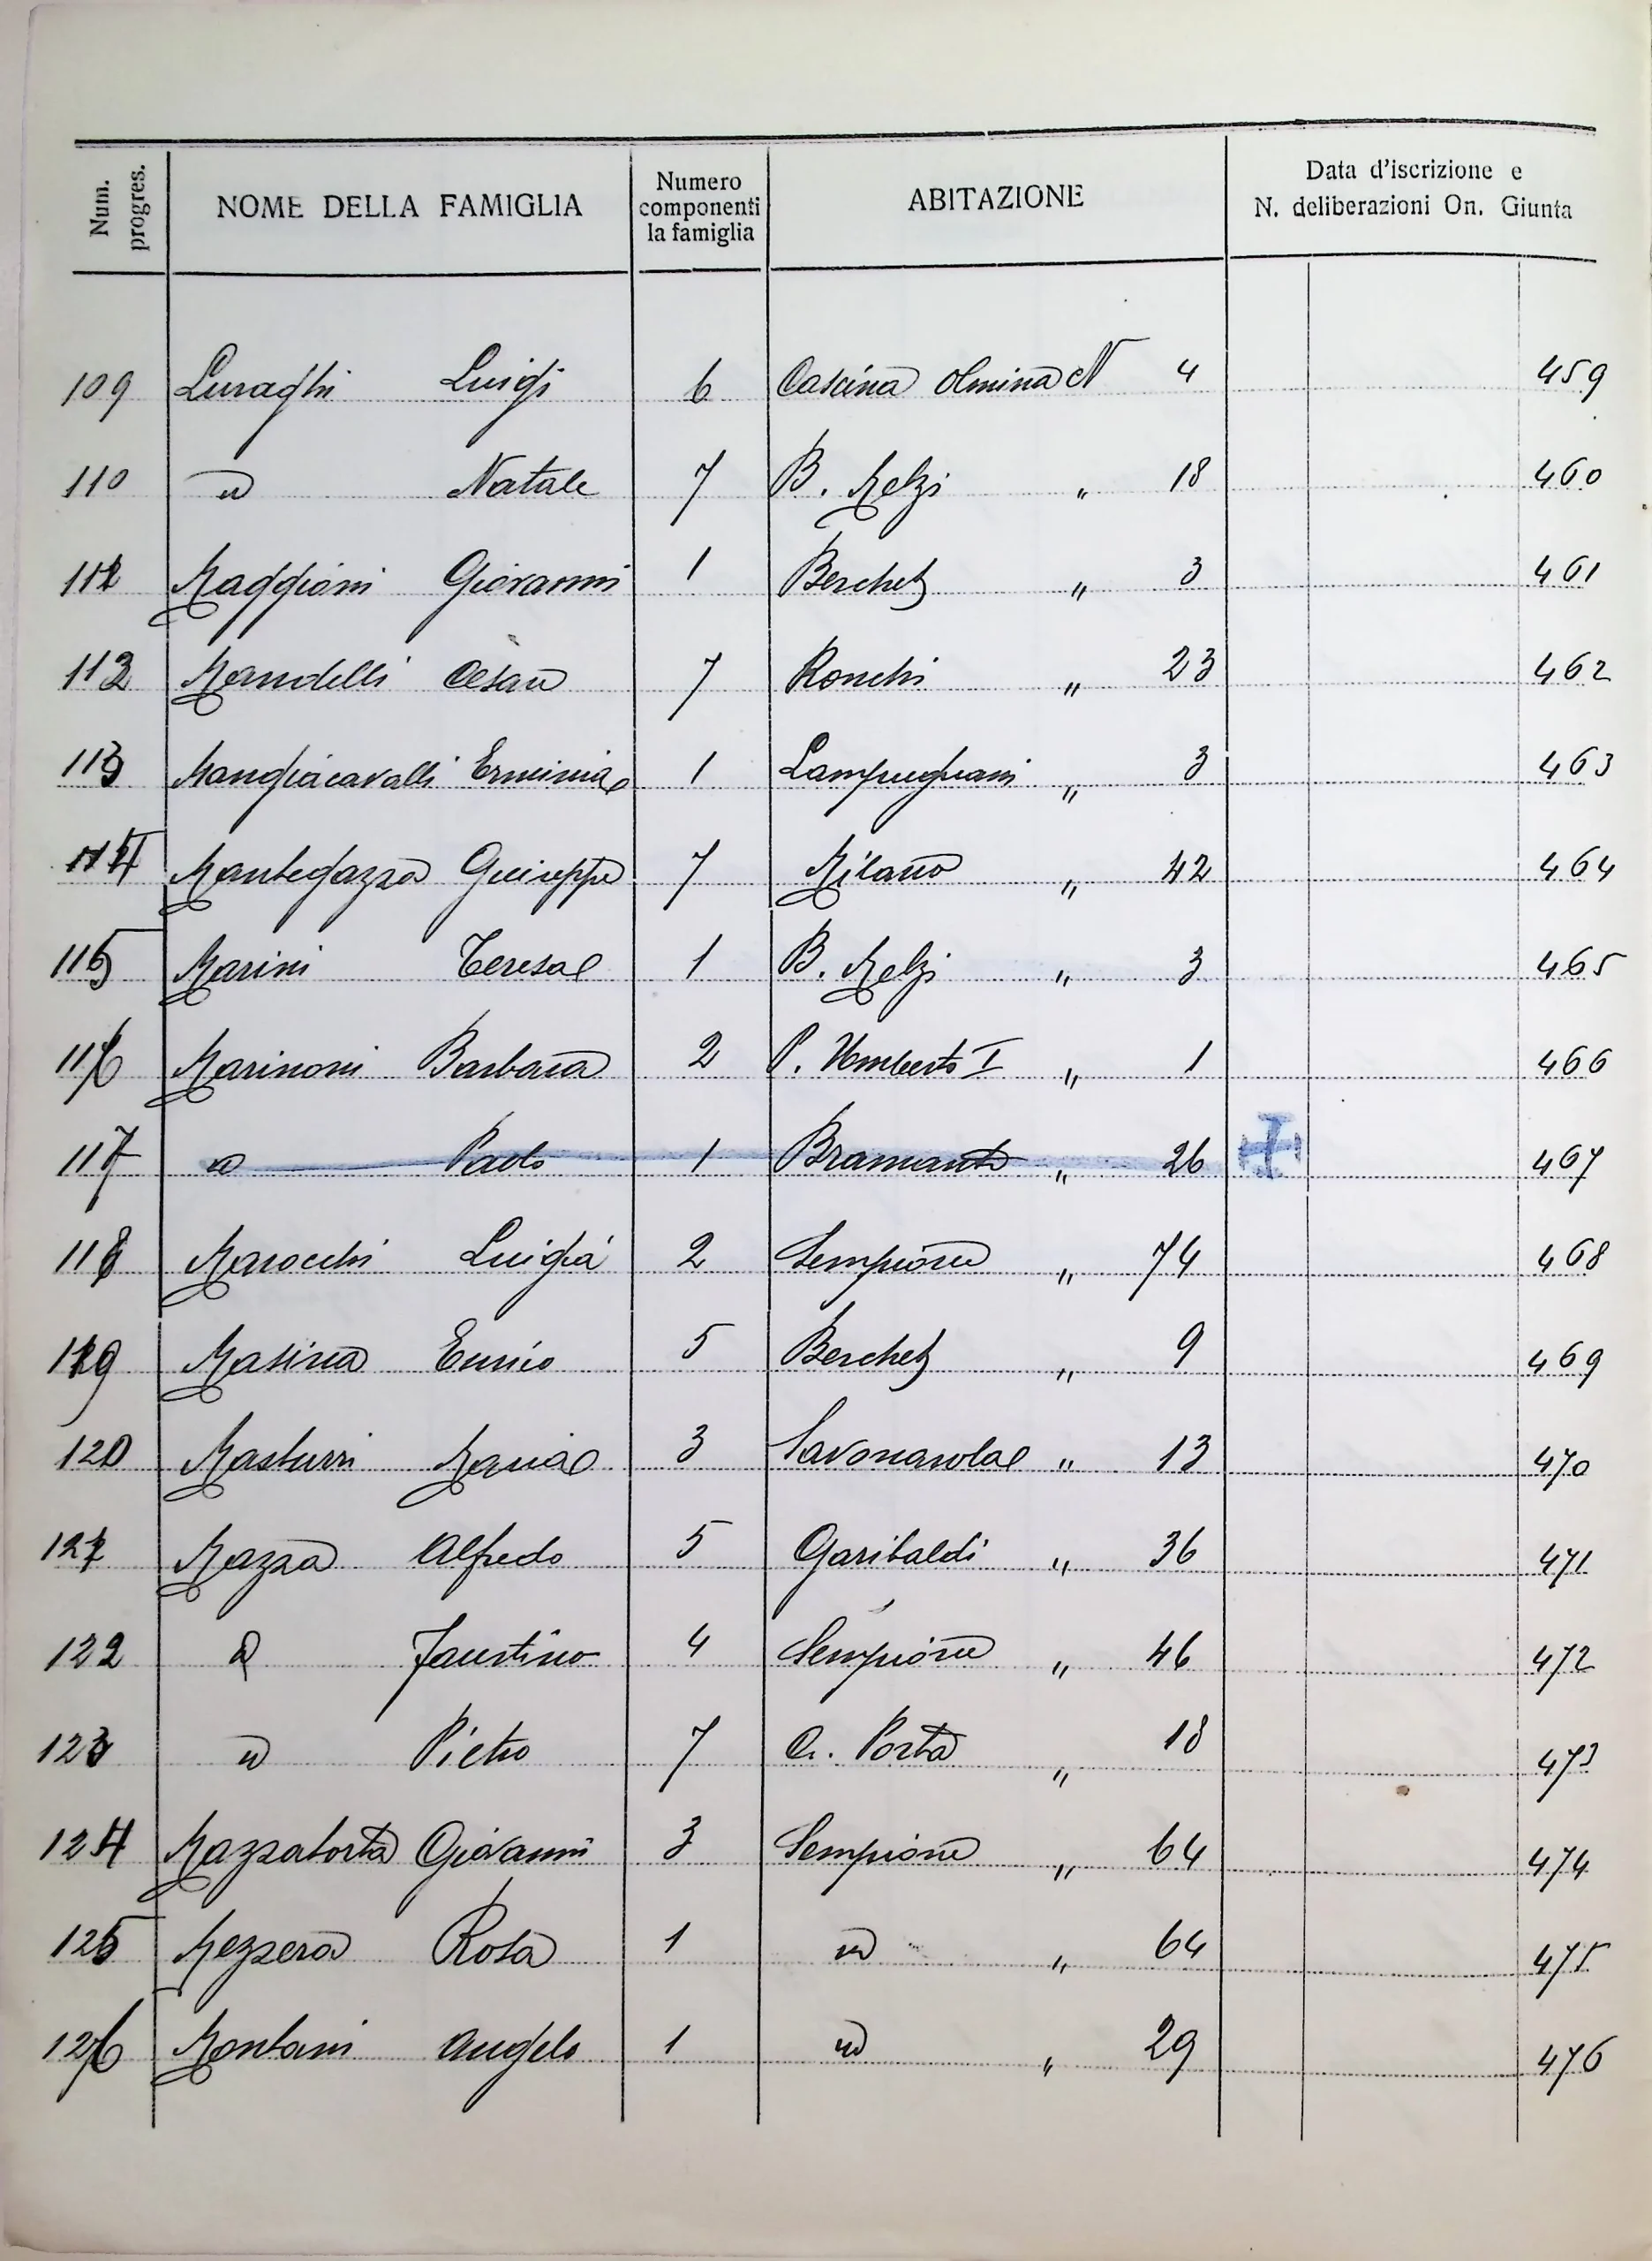 Num. progres.
NOME DELLA FAMIGLIA
Numero componenti la famiglia
ABITAZIONE
Data d'iscrizione e N. deliberazioni On. Giunta
109 Luraghi Luigi 6 Cascina Olmina N 4 459
110 " Natale 7 B. Melzi " 18 460
111 Maggioni Giovanni 1 Berchet " 3 461
112 Mandelli Cesare 7 Ronchi " 23 462
113 Mangiacavalli Erminia 1 Lampugnani " 3 463
114 Mantegazza Giuseppe 7 Milano " 42 464
115 Marini Teresa 1 B. Melzi " 3 465
116 Marinoni Barbara 2 P. Umberto I " 1 466
117 " Paolo 1 Bramante " 26 467
118 Marocchi Luigia 2 Sempione " 74 468
119 Masina Enrico 5 Berchet " 9 469
120 Masturzi Maria 3 Savonarola " 13 470
121 Mazza Alfredo 5 Garibaldi " 36 471
122 " Faustino 4 Sempione " 46 472
123 " Pietro 7 C. Porta " 18 473
124 Mazzatorta Giovanni 3 Sempione " 64 474
125 Mezzera Rosa 1 " " 64 475
126 Montani Angelo 1 " " 29 476